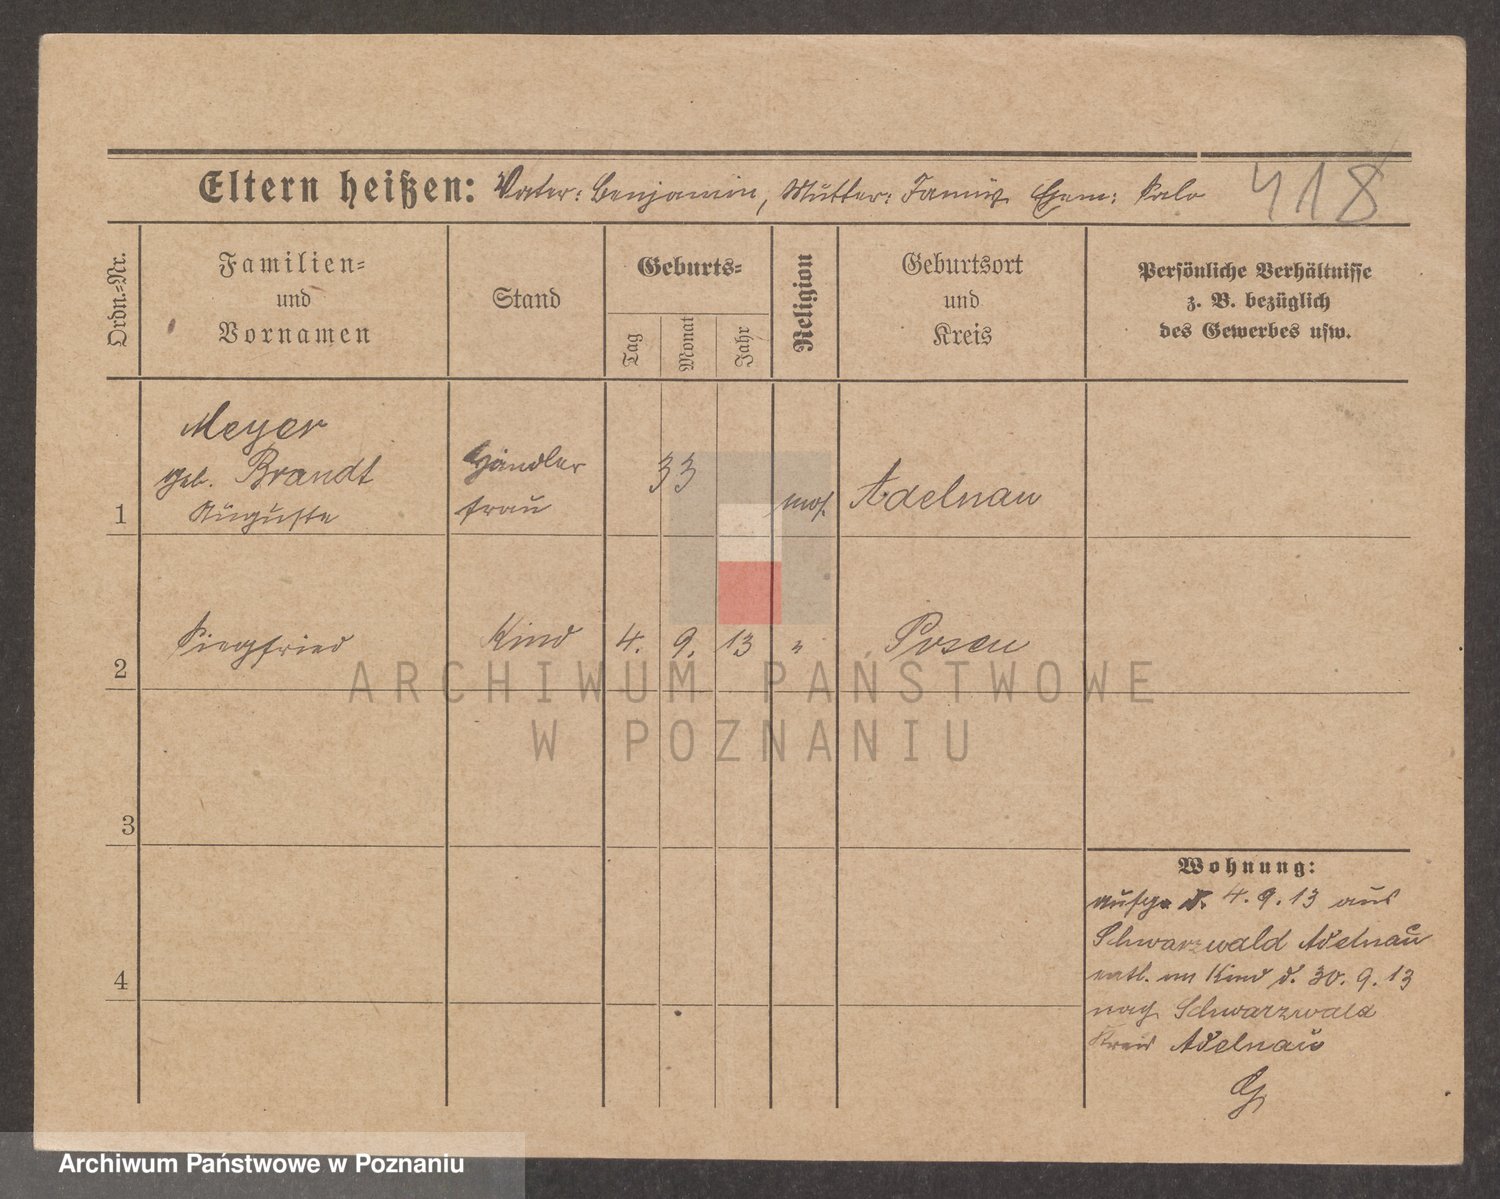 Eltern heißen: Vater: Benjamin, Mutter: Ehem: Salo 418
Ordn.-Nr.
Familien-
und
Vornamen
Stand
Geburts-
Tag
Monat
Jahr
Religion
Geburtsort
und
Kreis
Persönliche Verhältnisse
z. B. bezüglich
des Gewerbes usw.
1
Meyer
geb. Brandt
Auguste
Händler
frau
33
mos.
Adelnau
2
Siegfried
Kind
4. 9. 13
"
Posen
3
4
Wohnung:
4. 9. 13 aus
Schwarzwald Adelnau
entl. m Kind d. 30. 9. 13
nach Schwarzwald
Kreis Adelnau
ARCHIWUM PAŃSTWOWE
W POZNANIU
Archiwum Państwowe w Poznaniu